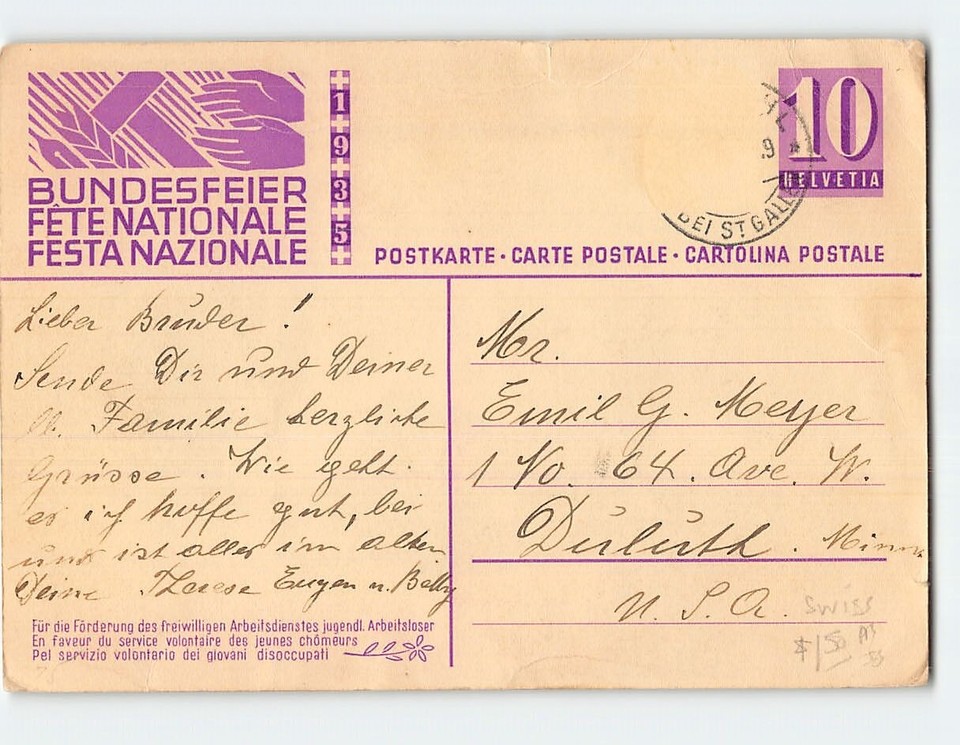 BUNDESFEIER
FÊTE NATIONALE
FESTA NAZIONALE
1935
10
HELVETIA
9 *
BEI ST GALL
POSTKARTE · CARTE POSTALE · CARTOLINA POSTALE
Lieber Bruder !
Sende Dir und Deiner
lb. Familie herzliche
Grüsse. Wie geht
es ich hoffe gut, bei
uns ist alles im alten
Deine Therese Eugen u. Betty
Für die Förderung des freiwilligen Arbeitsdienstes jugendl. Arbeitsloser
En faveur du service volontaire des jeunes chômeurs
Pel servizio volontario dei giovani disoccupati
Mr.
Emil G. Meyer
1 No. 64. Ave. W.
Duluth. Minn
U. S. A.
SWISS